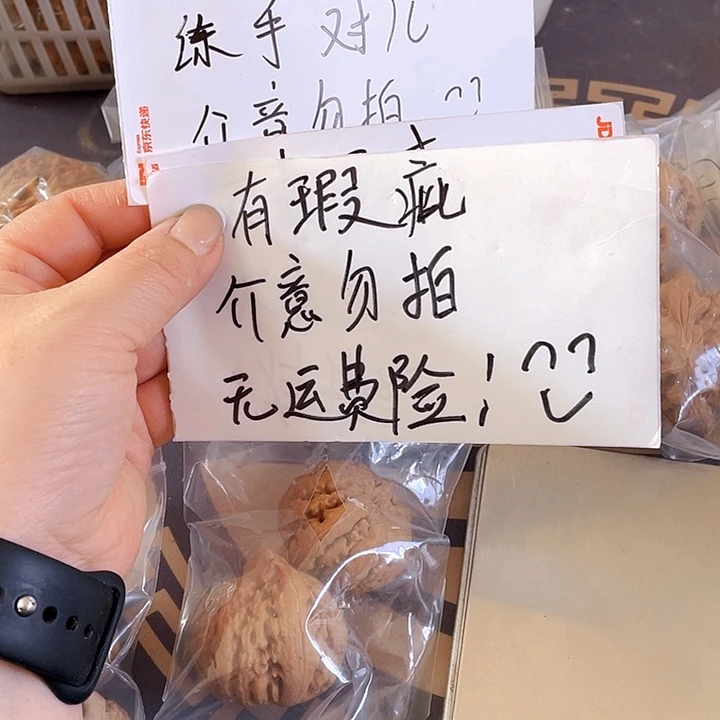 练手对儿
介意勿拍
京东快递
Express
JD
有瑕疵
介意勿拍
无运费险！